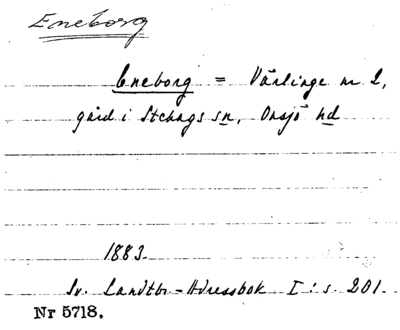 Eneborg
Eneborg = Värlinge nr 2,
gård i Stehags sn, Onsjö hd
1883
Sv. Landtbr-Adressbok I: s. 201.
Nr 5718.